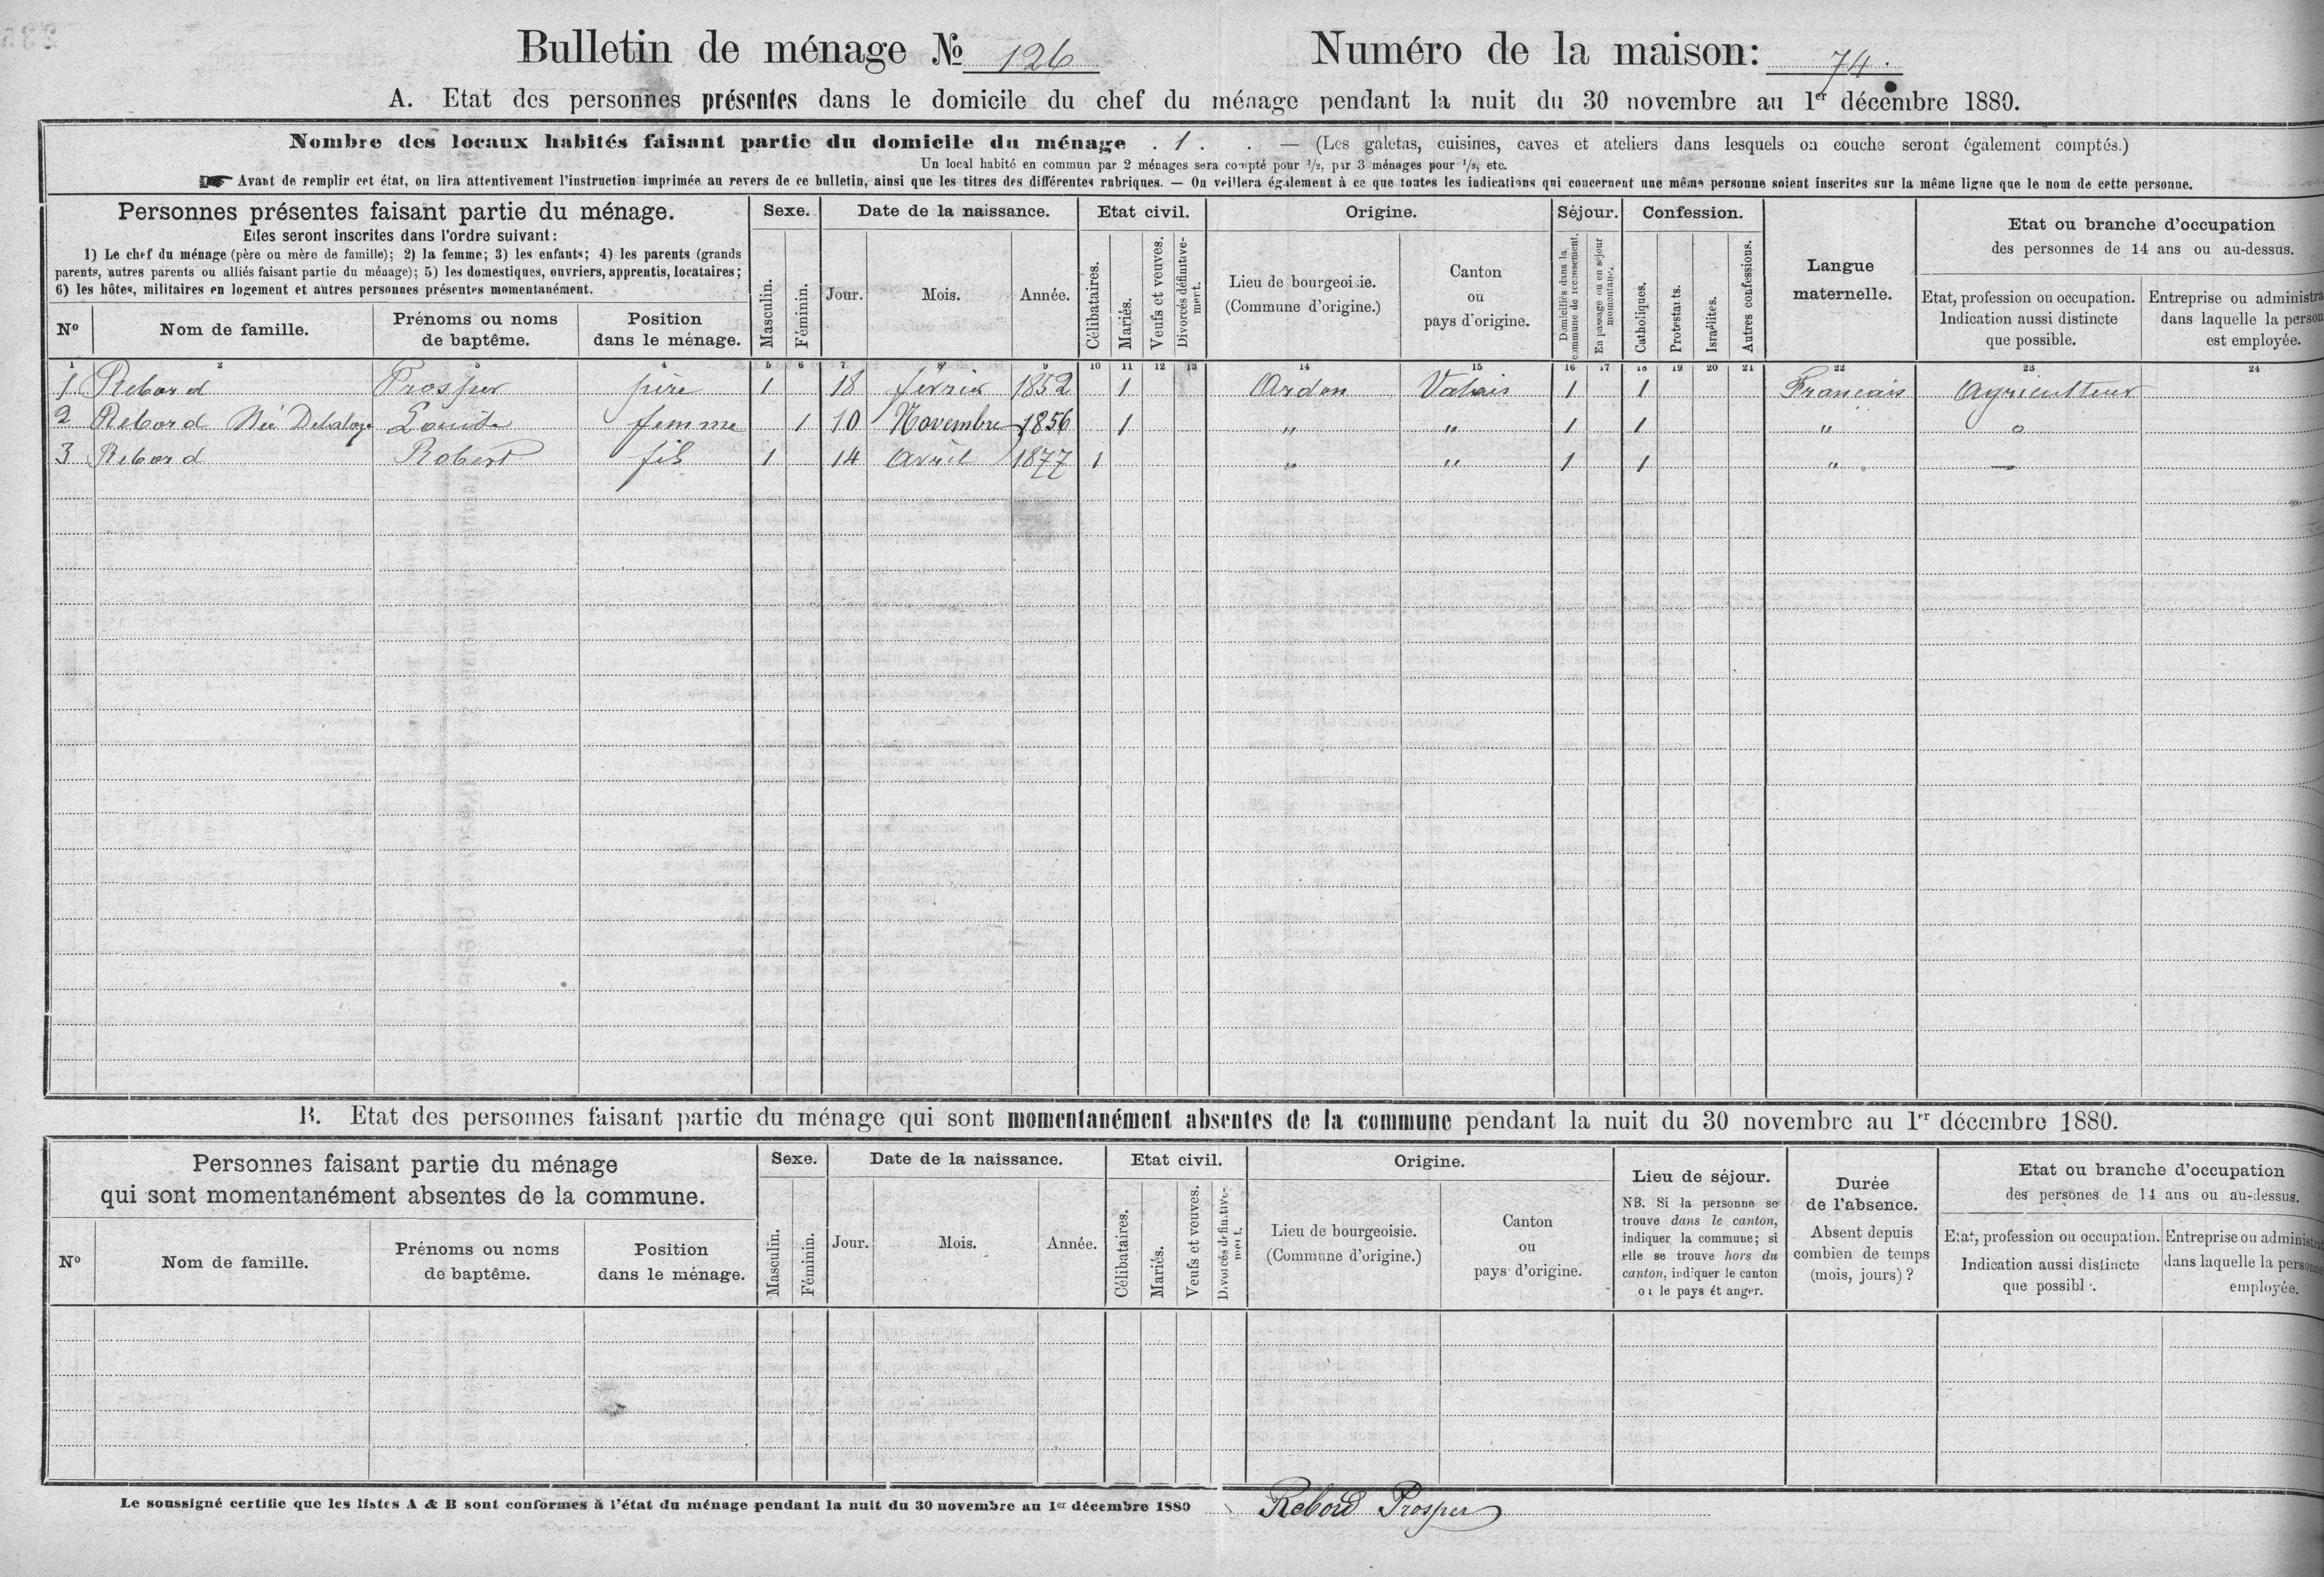 Bulletin de ménage № 126 Numéro de la maison: 74.
A. Etat des personnes présentes dans le domicile du chef du ménage pendant la nuit du 30 novembre au 1er décembre 1880.
Nombre des locaux habités faisant partie du domicile du ménage . 1 . . — (Les galetas, cuisines, caves et ateliers dans lesquels on couche seront également comptés.)
Un local habité en commun par 2 ménages sera compté pour 1/2, par 3 ménages pour 1/3, etc.
Avant de remplir cet état, on lira attentivement l'instruction imprimée au revers de ce bulletin, ainsi que les titres des différentes rubriques. — On veillera également à ce que toutes les indications qui concernent une même personne soient inscrites sur la même ligne que le nom de cette personne.
Personnes présentes faisant partie du ménage.
Elles seront inscrites dans l'ordre suivant:
1) Le chef du ménage (père ou mère de famille); 2) la femme; 3) les enfants; 4) les parents (grands
parents, autres parents ou alliés faisant partie du ménage); 5) les domestiques, ouvriers, apprentis, locataires;
6) les hôtes, militaires en logement et autres personnes présentes momentanément.
Nº
Nom de famille.
Prénoms ou noms
de baptême.
Position
dans le ménage.
Sexe.
Masculin.
Féminin.
Date de la naissance.
Jour.
Mois.
Année.
Etat civil.
Célibataires.
Mariés.
Veufs et veuves.
Divorcés définitive-
ment.
Origine.
Lieu de bourgeoisie.
(Commune d'origine.)
Canton
ou
pays d'origine.
Séjour.
Domiciliés dans la
commune de recensement.
En passage ou en séjour
momentané.
Confession.
Catholiques.
Protestants.
Israélites.
Autres confessions.
Langue
maternelle.
Etat ou branche d'occupation
des personnes de 14 ans ou au-dessus.
Etat, profession ou occupation.
Indication aussi distincte
que possible.
Entreprise ou administra
dans laquelle la person
est employée.
1 2 3 4 5 6 7 8 9 10 11 12 13 14 15 16 17 18 19 20 21 22 23 24
1 Rebord Prosper père 1 18 février 1852 1 Ardon Valais 1 1 Francais Agriculteur
2 Rebord Née Delaloye Louise femme 1 10 Novembre 1856 1 " " 1 1 " o
3 Rebord Robert fils 1 14 Avril 1877 1 " " 1 1 " —
B. Etat des personnes faisant partie du ménage qui sont momentanément absentes de la commune pendant la nuit du 30 novembre au 1er décembre 1880.
Personnes faisant partie du ménage
qui sont momentanément absentes de la commune.
Nº
Nom de famille.
Prénoms ou noms
de baptême.
Position
dans le ménage.
Sexe.
Masculin.
Féminin.
Date de la naissance.
Jour.
Mois.
Année.
Etat civil.
Célibataires.
Mariés.
Veufs et veuves.
Divorcés définitive-
ment.
Origine.
Lieu de bourgeoisie.
(Commune d'origine.)
Canton
ou
pays d'origine.
Lieu de séjour.
NB. Si la personne se
trouve dans le canton,
indiquer la commune; si
elle se trouve hors du
canton, indiquer le canton
ou le pays étranger.
Durée
de l'absence.
Absent depuis
combien de temps
(mois, jours) ?
Etat ou branche d'occupation
des persones de 14 ans ou au-dessus.
Etat, profession ou occupation.
Indication aussi distincte
que possible.
Entreprise ou administrat
dans laquelle la personne
employée.
Le soussigné certifie que les listes A & B sont conformes à l'état du ménage pendant la nuit du 30 novembre au 1er décembre 1880 Rebord Prosper